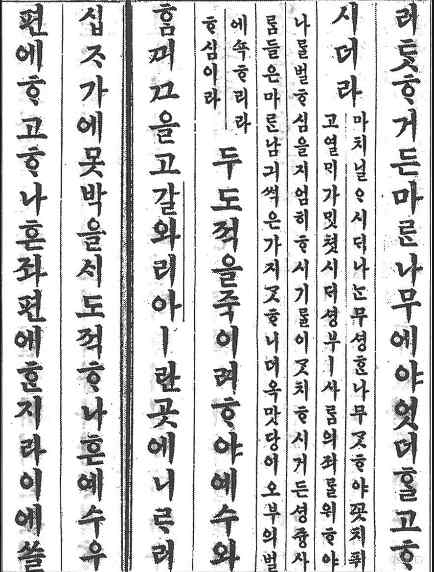 려듯ᄒᆞ거든마ᄅᆞᆫ나무에야엇더ᄒᆞᆯ고ᄒᆞ
시더라
마치닐ᄋᆞ시ᄃᆡ나ᄂᆞᆫ무셩ᄒᆞᆫ나무ᄀᆞᆺᄒᆞ야ᄭᅩᆺ치퓌
고열ᄆᆡ가ᄆᆡᆺ쳣시ᄃᆡ셩부ㅣ사ᄅᆞᆷ의죄ᄅᆞᆯ위ᄒᆞ야
나ᄅᆞᆯ벌ᄒᆞ심을지엄히ᄒᆞ시기ᄅᆞᆯ이ᄀᆞᆺ치ᄒᆞ시거든셩즁사
ᄅᆞᆷ들은마ᄅᆞᆫ남긔썩은가지ᄀᆞᆺᄒᆞ니더옥맛당이오부의벌
에쇽ᄒᆞ리라
ᄒᆞ심이라
두도적을죽이려ᄒᆞ야예수와
ᄒᆞᆷᄭᅴᄭᅳ을고갈와리아ㅣ란곳에니ᄅᆞ러
십ᄌᆞ가에못박을ᄉᆡ도적ᄒᆞ나흔예수우
편에ᄒᆞ고ᄒᆞ나흔좌편에ᄒᆞᆫ지라이에쓸